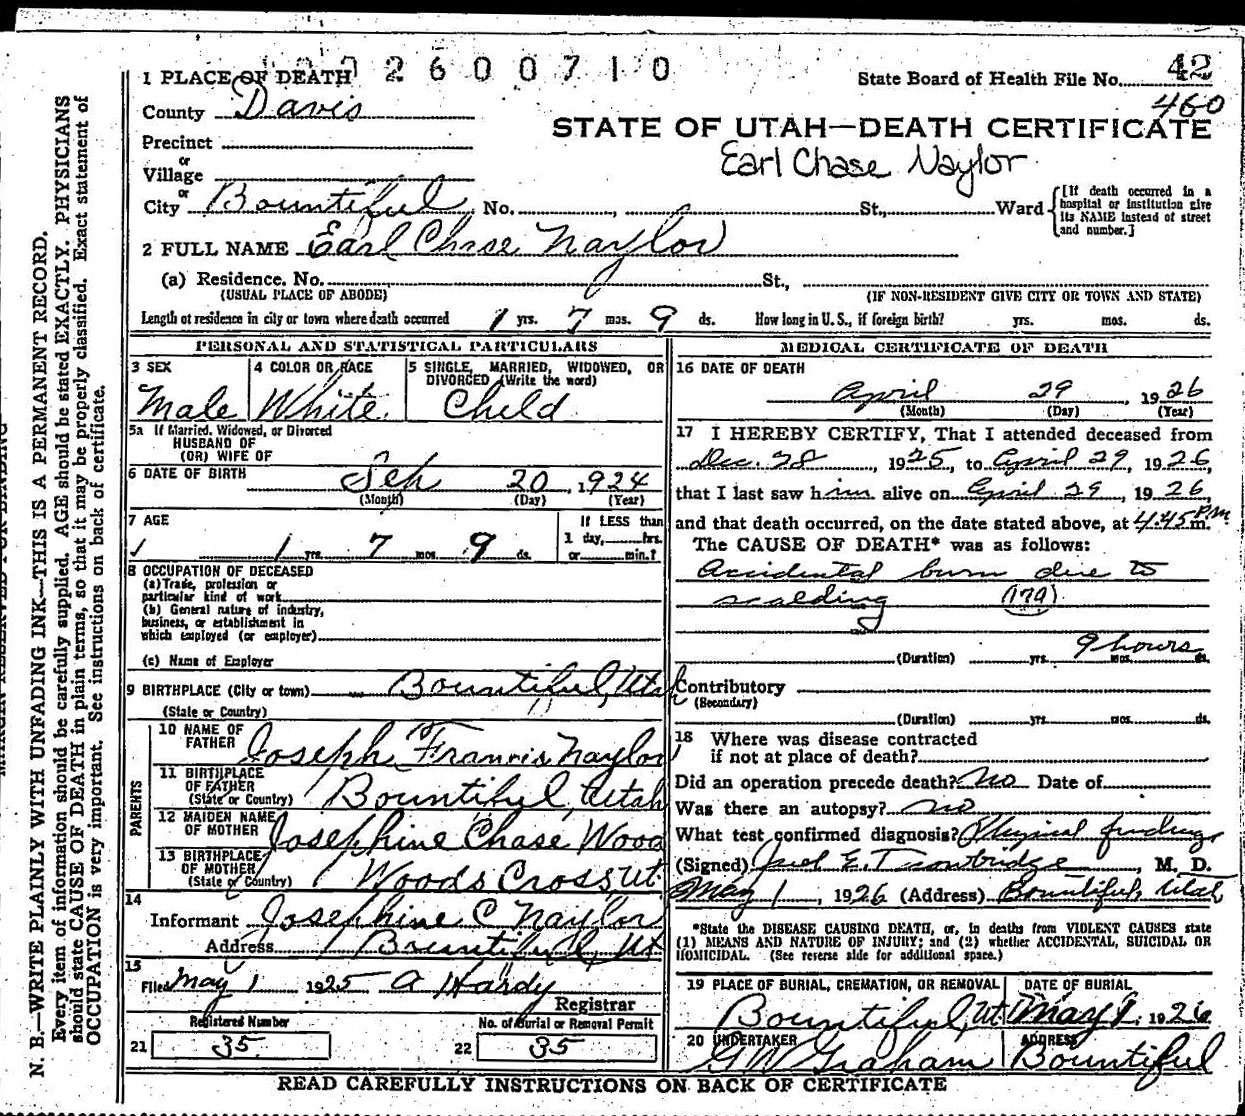 2600710
1 PLACE OF DEATH
State Board of Health File No. 42
460
County Davis
STATE OF UTAH—DEATH CERTIFICATE
Precinct
Earl Chase Naylor
or
Village
or
City Bountiful, No. , St., Ward
[If death occurred in a hospital or institution give its NAME instead of street and number.]
2 FULL NAME Earl Chase Naylor
(a) Residence. No. St.,
(USUAL PLACE OF ABODE) (IF NON-RESIDENT GIVE CITY OR TOWN AND STATE)
Length of residence in city or town where death occurred 1 yrs. 7 mos. 9 ds. How long in U. S., if foreign birth? yrs. mos. ds.
PERSONAL AND STATISTICAL PARTICULARS
3 SEX
Male
4 COLOR OR RACE
White
5 SINGLE, MARRIED, WIDOWED, OR
DIVORCED (Write the word)
Child
5a If Married, Widowed, or Divorced
HUSBAND OF
(OR) WIFE OF
6 DATE OF BIRTH
Sep 20, 1924
(Month) (Day) (Year)
7 AGE
1 yrs. 7 mos. 9 ds.
If LESS than
1 day, hrs.
or min.?
8 OCCUPATION OF DECEASED
(a) Trade, profession or
particular kind of work
(b) General nature of industry,
business, or establishment in
which employed (or employer)
(c) Name of Employer
9 BIRTHPLACE (City or town) Bountiful, Utah
(State or Country)
PARENTS
10 NAME OF
FATHER Joseph Francis Naylor
11 BIRTHPLACE
OF FATHER
(State or Country) Bountiful, Utah
12 MAIDEN NAME
OF MOTHER Josephine Chase Wood
13 BIRTHPLACE
OF MOTHER
(State or Country) Woods Cross Ut.
14
Informant Josephine C Naylor
Address Bountiful, Ut
15
Filed May 1 1925 A Hardy
Registrar
Registered Number
21 35
No. of Burial or Removal Permit
22 35
MEDICAL CERTIFICATE OF DEATH
16 DATE OF DEATH
April 29, 1926
(Month) (Day) (Year)
17 I HEREBY CERTIFY, That I attended deceased from
Dec. 28, 1925, to April 29, 1926,
that I last saw him alive on April 29, 1926,
and that death occurred, on the date stated above, at 4.45 P.m.
The CAUSE OF DEATH* was as follows:
Accidental burn due to
scalding (179)
(Duration) yrs. 9 hours mos. ds.
Contributory
(Secondary)
(Duration) yrs. mos. ds.
18 Where was disease contracted
if not at place of death?
Did an operation precede death? No Date of
Was there an autopsy? no
What test confirmed diagnosis? Physical findings
(Signed) E. Trowbridge, M. D.
May 1, 1926 (Address) Bountiful, Utah
*State the DISEASE CAUSING DEATH, or, in deaths from VIOLENT CAUSES state
(1) MEANS AND NATURE OF INJURY; and (2) whether ACCIDENTAL, SUICIDAL OR
HOMICIDAL. (See reverse side for additional space.)
19 PLACE OF BURIAL, CREMATION, OR REMOVAL
Bountiful, Ut.
DATE OF BURIAL
May 1, 1926
20 UNDERTAKER
G W Graham
ADDRESS
Bountiful
READ CAREFULLY INSTRUCTIONS ON BACK OF CERTIFICATE
N. B.—WRITE PLAINLY WITH UNFADING INK—THIS IS A PERMANENT RECORD.
Every item of information should be carefully supplied. AGE should be stated EXACTLY. PHYSICIANS
should state CAUSE OF DEATH in plain terms, so that it may be properly classified. Exact statement of
OCCUPATION is very important. See instructions on back of certificate.